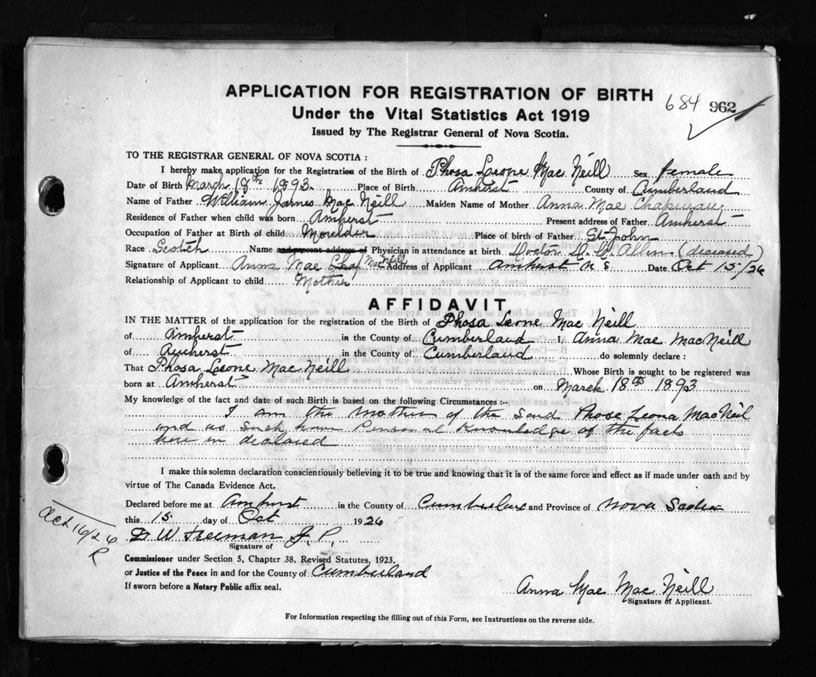 APPLICATION FOR REGISTRATION OF BIRTH
684 962
Under the Vital Statistics Act 1919
Issued by The Registrar General of Nova Scotia.
TO THE REGISTRAR GENERAL OF NOVA SCOTIA :
I hereby make application for the Registration of the Birth of Phosa Leone Mac Neill Sex female
Date of Birth March 18th 1893 Place of Birth Amherst County of Cumberland
Name of Father William James Mac Neill Maiden Name of Mother Anna Mae Chapman
Residence of Father when child was born Amherst Present address of Father Amherst
Occupation of Father at Birth of child Moulder Place of birth of Father St John
Race Scotch Name and present address of Physician in attendance at birth Doctor Allen (deceased)
Signature of Applicant Anna Mae Chap MacNeill Address of Applicant Amherst N S Date Oct 15/26
Relationship of Applicant to child Mother
AFFIDAVIT
IN THE MATTER of the application for the registration of the Birth of Phosa Leone Mac Neill
of Amherst in the County of Cumberland I, Anna Mae MacNeill
of Amherst in the County of Cumberland do solemnly declare :
That Phosa Leone Mac Neill Whose Birth is sought to be registered was
born at Amherst on March 18th 1893
My knowledge of the fact and date of such Birth is based on the following Circumstances :-
I am the mother of the said Phose Leona MacNeil
and as such have Personal Knowledge of the facts
here in declared
I make this solemn declaration conscientiously believing it to be true and knowing that it is of the same force and effect as if made under oath and by
virtue of The Canada Evidence Act.
Declared before me at Amherst in the County of Cumberland and Province of Nova Scotia
this 15 day of Oct 1926
Oct 16/26
R
D W Freeman J. P.
Signature of
Commissioner under Section 5, Chapter 38, Revised Statutes, 1923.
or Justice of the Peace in and for the County of Cumberland
If sworn before a Notary Public affix seal.
Anna Mae Mac Neill
Signature of Applicant.
For Information respecting the filling out of this Form, see Instructions on the reverse side.